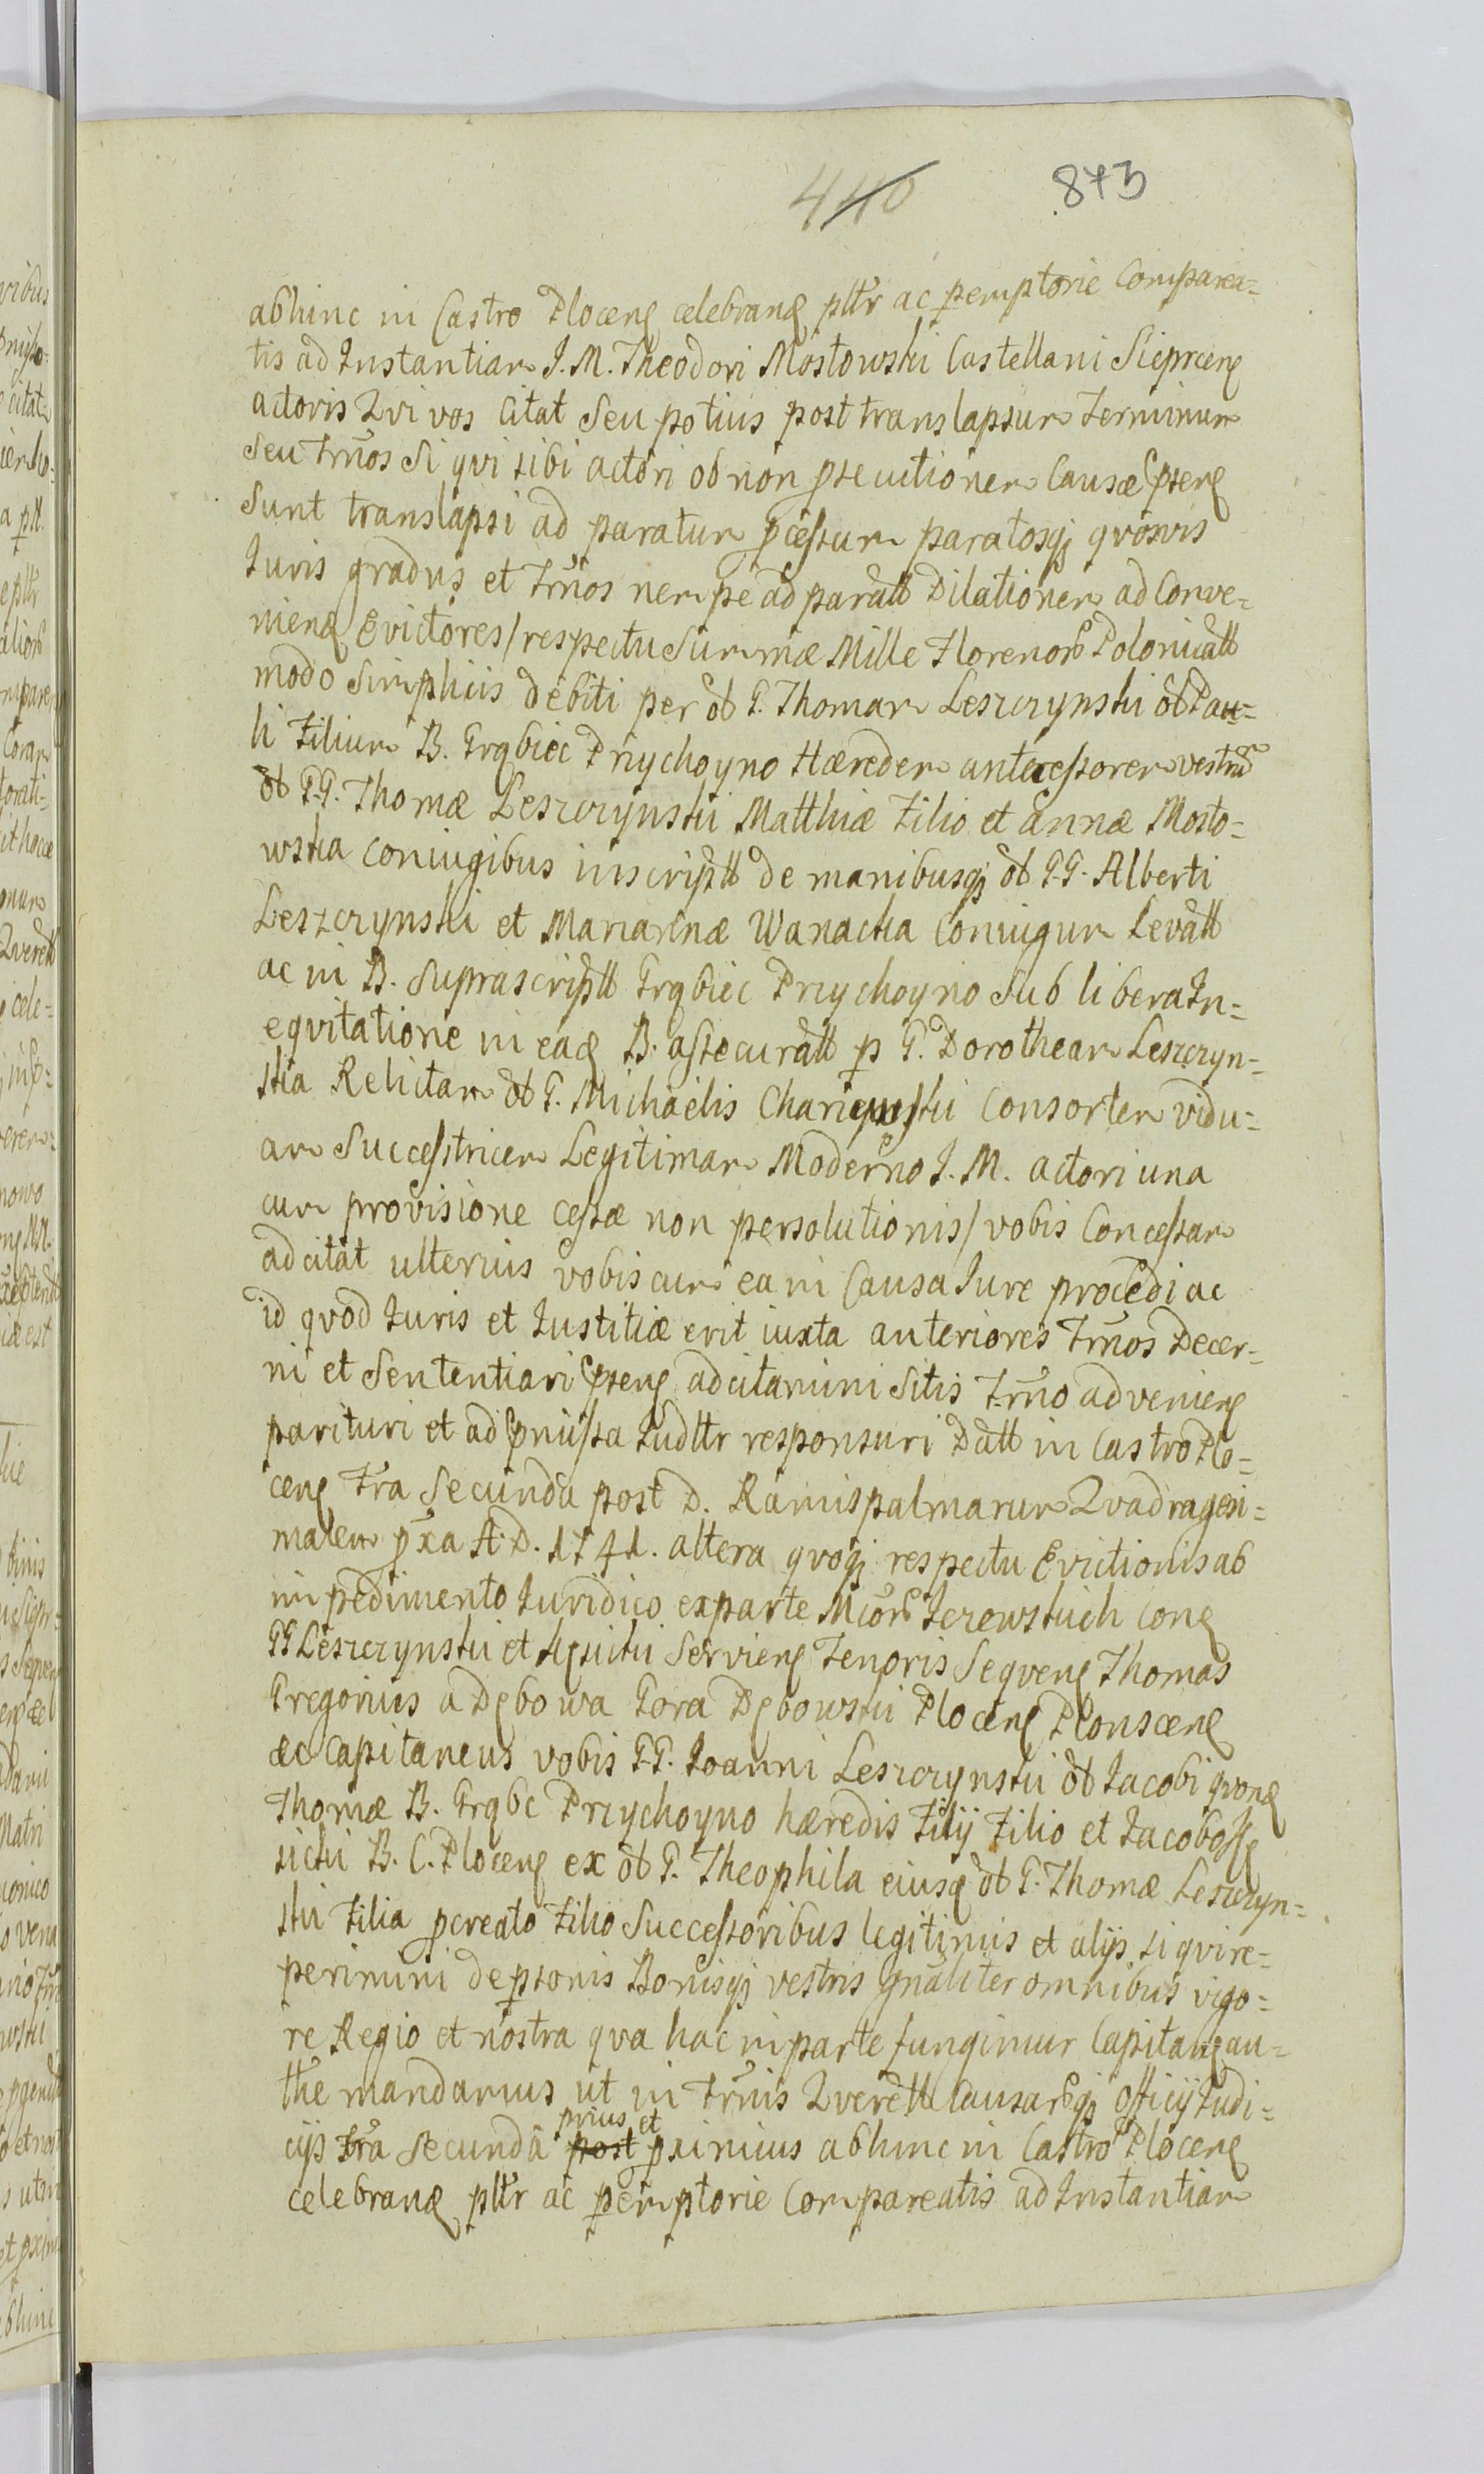 440 873
abhinc in Castro Plocen celebran pltr ac peremptorie Comparea=
tis ad Instantiam I. M. Theodori Mostowski Castellani Sieprcen
actoris Qvi vos Citat Seu potius post translapsum Terminum
Seu Trnos Si qvi sibi actori ob non psecutionem Causæ psen
Sunt translapsi ad paratum pcessum paratosq qvosvis
Iuris gradus et Trnos nempe ad paratt Dilationem ad Conve=
nien Evictores/ respectu Summæ Mille Florenor Polonicatt
modo Simplicis debiti per ol G. Thomam Leszczynski ol Pau=
li Filium B. Grąbiec Przychoyno Hæredem antecessorem vestrum
ol G.G. Thomæ Leszczynski Matthiæ Filio et annæ Mosto=
wska coniugibus inscriptt de manibusq ol G.G. Alberti
Leszczynski et Mariannæ Wanacka Coniugum Levatt
ac in B. Suprascriptt Grąbiec Przychoyno Sub libera In=
eqvitatione in ead B. assecuratt p G. Dorotheam Leszczyn=
ska Relictam ol G. Michaelis Consortem vidu=
am Successtricem Legitimam Moderno I. M. actori una
cum provisione cessæ non persolutionis/ vobis Concessam
ad citat ulterius vobiscum ea in Causa Iure procedi ac
id qvod Iuris et Iustitiæ erit iuxta anteriores Trnos Decer=
ni et Sententiari psen adcitamini Sitis Trno advenien
parituri et ad pmissa Iudltr responsuri Datt in Castro Plo=
cen Fra Secunda post D. Ramispalmarum Qvadragesi=
malem pxa A. D. 1741. altera qvoq respectu Evictionis ab
impedimento Iuridico exparte Mcor Jerewskich con
GG Leszczynski et Servien Tenoris Seqven Thomas
Gregorius a Dębowa Gora Dębowski Plocen Plonscen
æc Capitaneus vobis G.G. Ioanni Leszczynski ol Iacobi qvon
Thomæ B. Grąbc Przychoyno hæredis Filij Filio et Iacobo
sicki B. C. Plocen ex ol G. Theophila eiusd ol G. Thomæ Leszczyn=
ski Filia pcreato Filio Successoribus legitimis et alijs si qvi re=
perimini de psonis Bonisq vestris gnaliter omnibus vigo=
re Regio et nostra qva hac in parte fungimur Capitan au=
tthe mandamus ut in Trnis Qverell Causarq officij Iudi=
cijs fra Secunda post prius et pximius abhinc in Castro Plocen
celebran pltr ac peremptorie Compareatis ad Instantiam